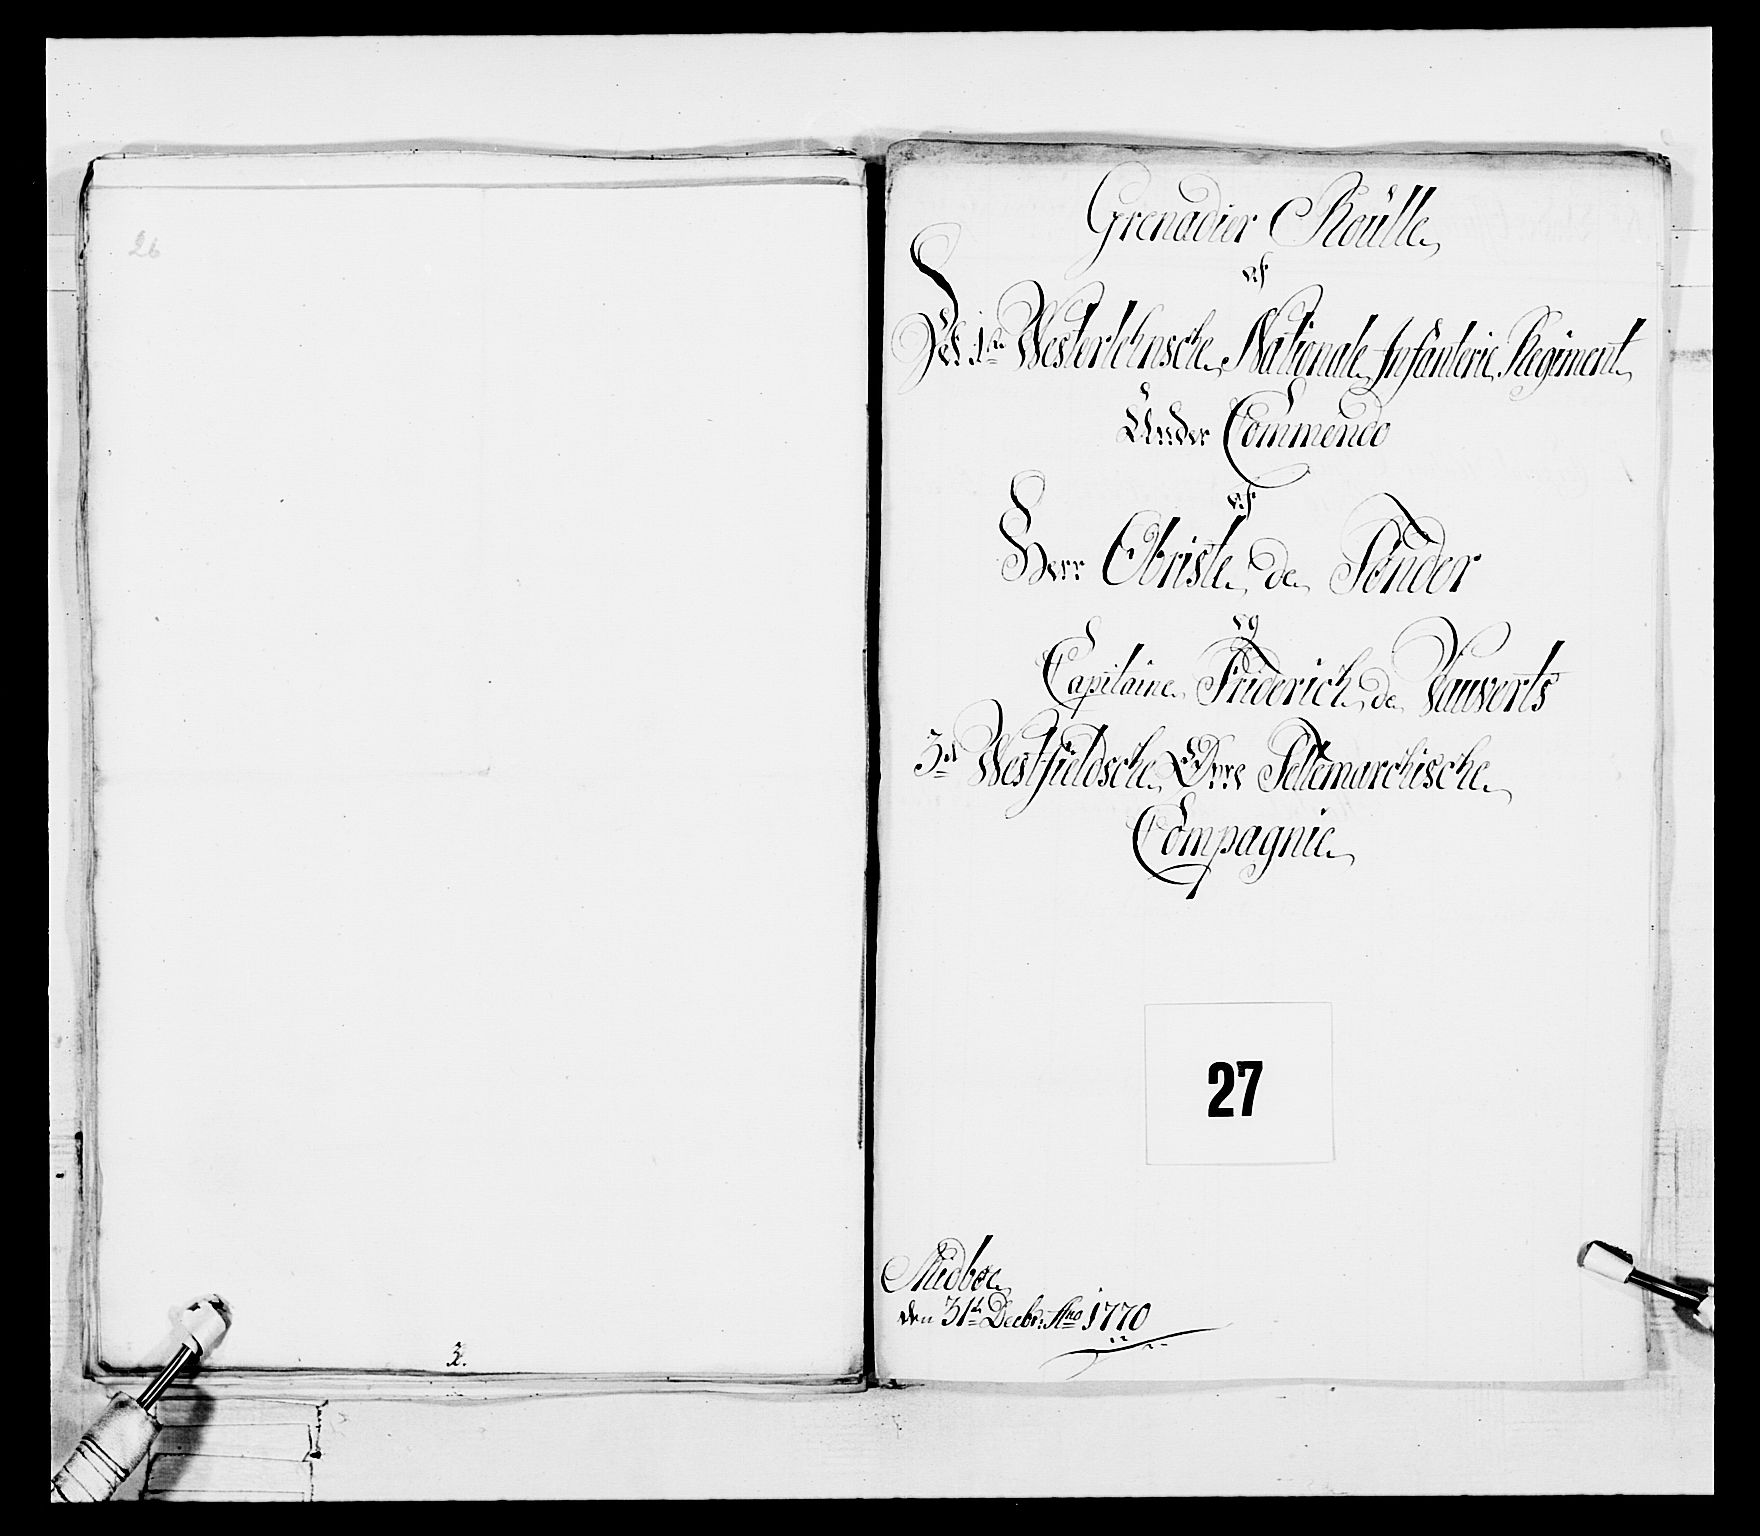 26
3.
Grenadier Roulle
af
Det 1te Westerlehnsche Nationale Infanterie Regiment
Under Commendo
af
Herr Obriste de Tönder
og
Capitaine Friderich de Vauverts
3de Westfieldsche Øvre Tellemarchische
Compagnie
27
Midboe
den 31te Decbr: Ao 1770